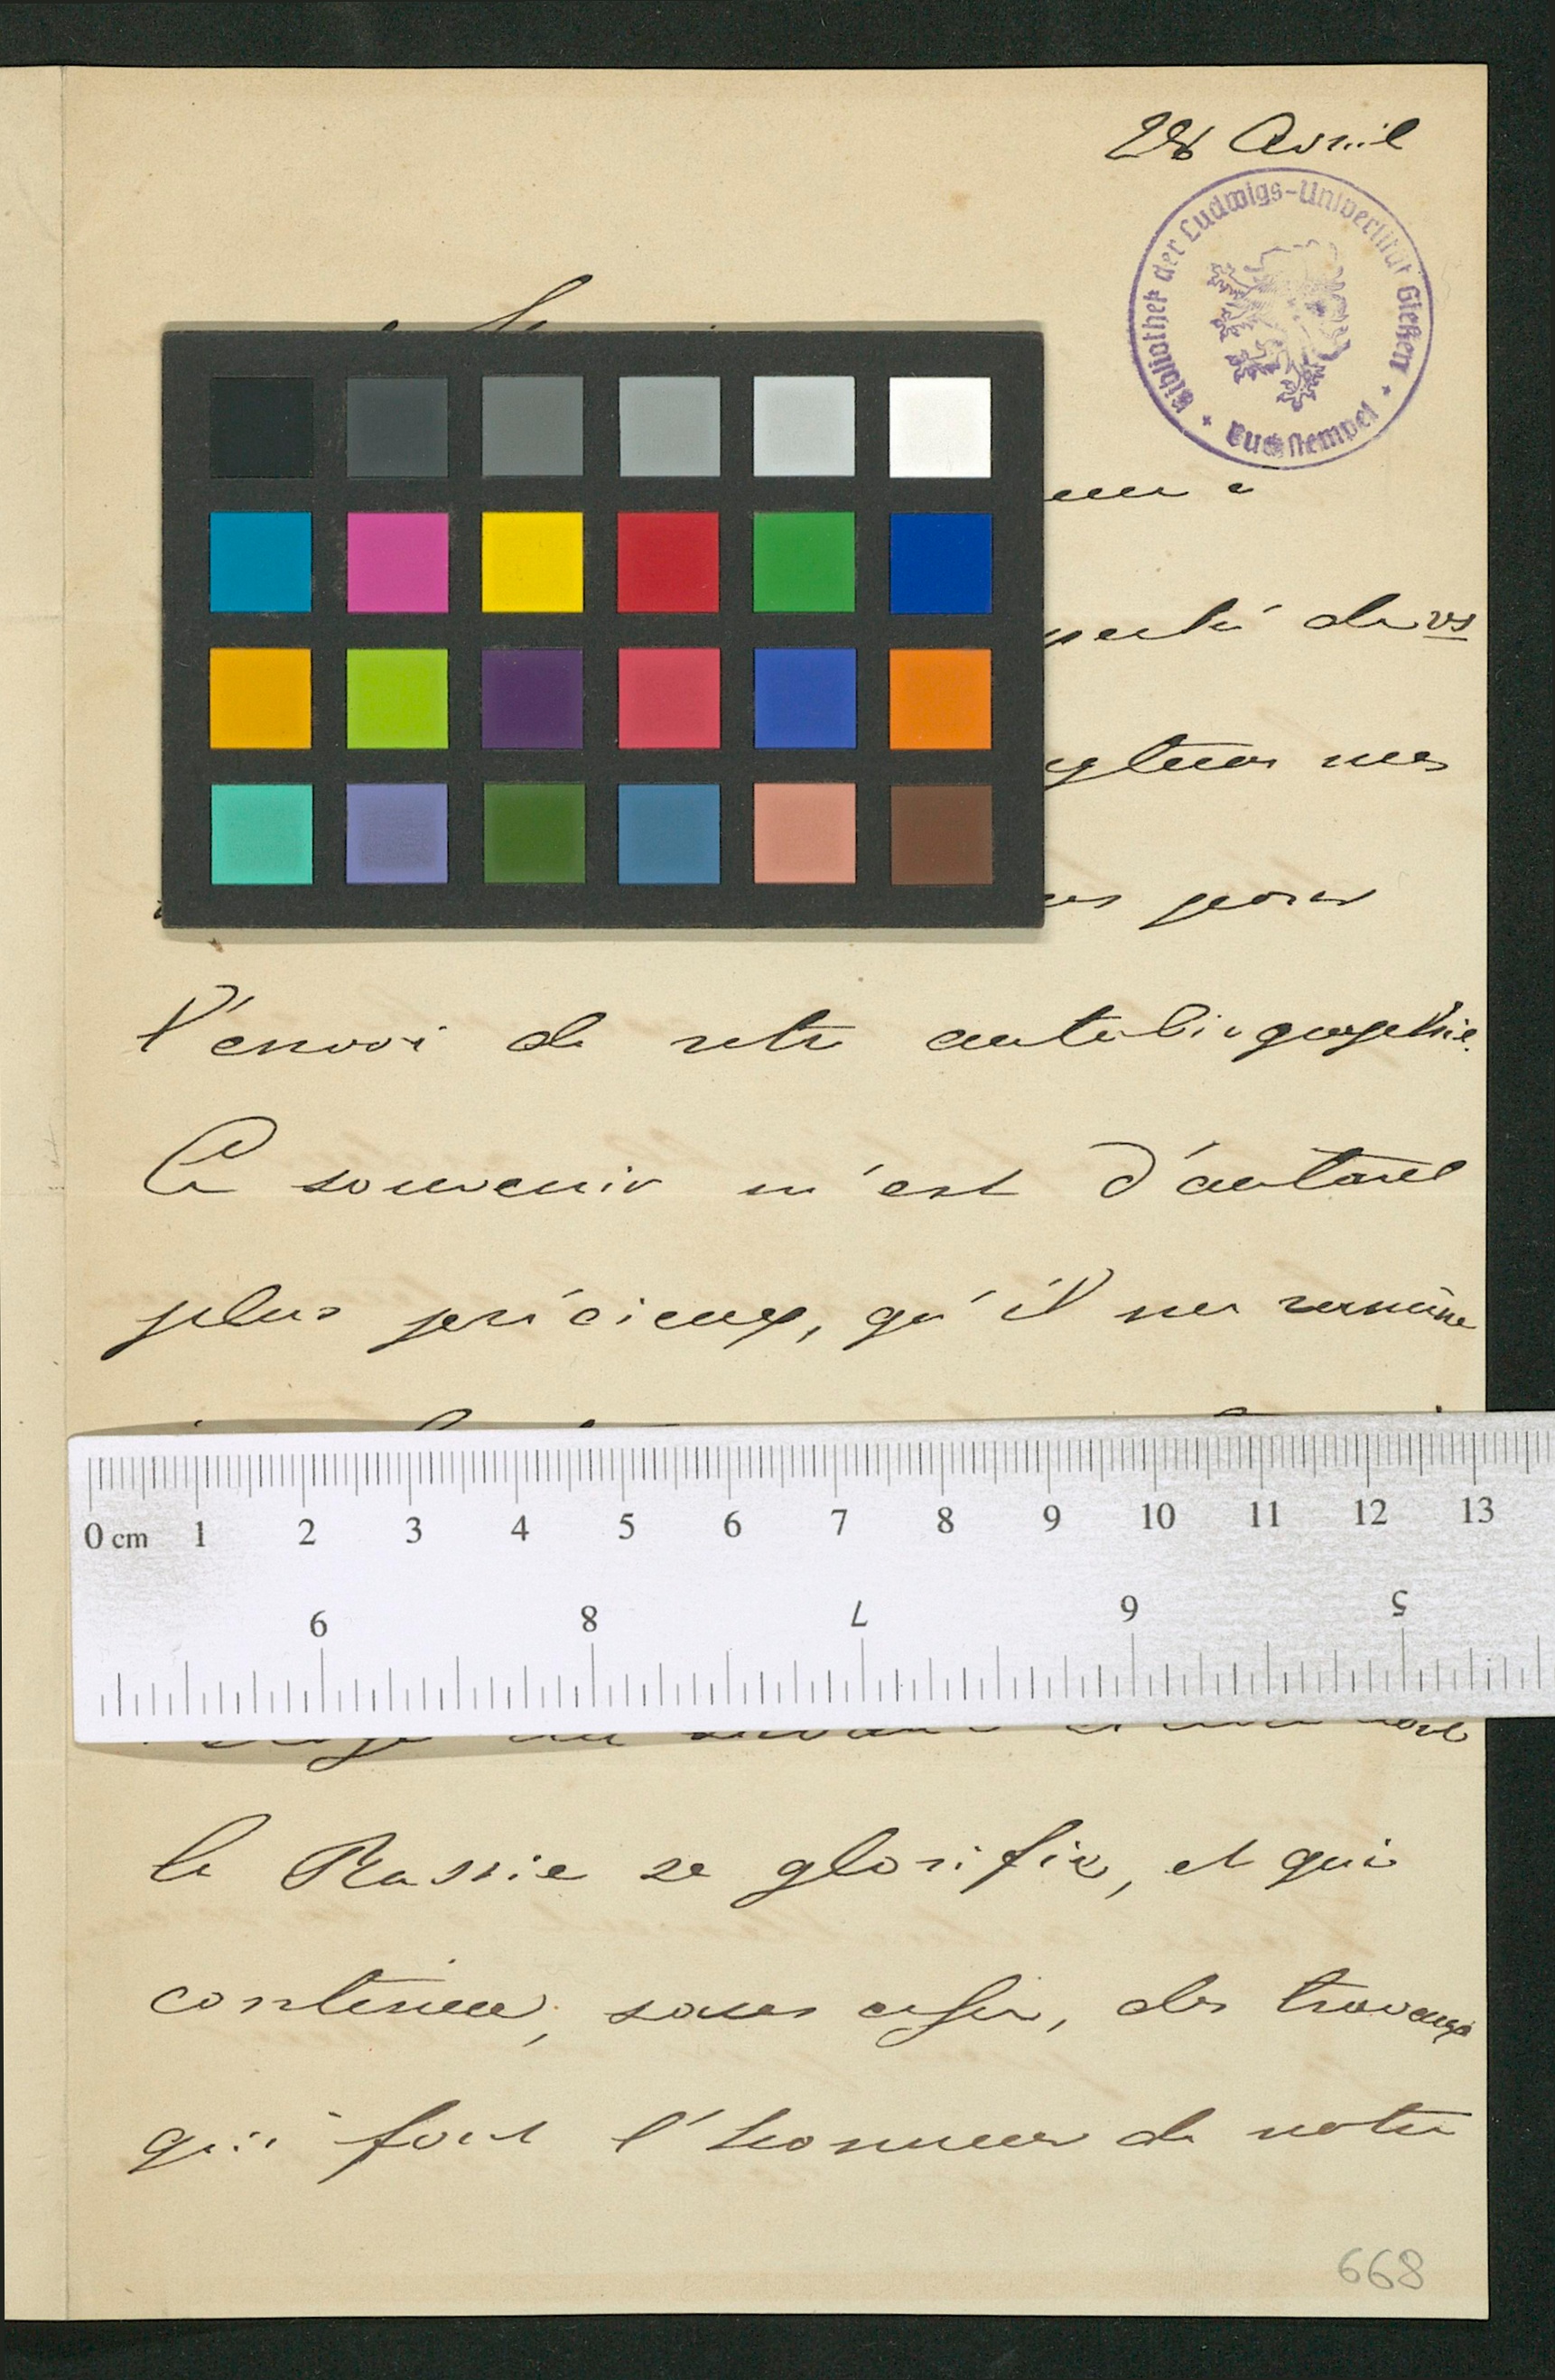 28 Avril
Bibliothek der Ludwigs-Universität Gießen
Buchstempel
de vs
mes
pour
l'envoi de votre autobiographie.
Ce souvenir m'est d'autant
plus précieux, qu'il me ramène
0 cm 1 2 3 4 5 6 7 8 9 10 11 12 13
9 8 7 6 5
la Russie se glorifie, et qui
continue, sans cesse, des travaux
qui font l'honneur de notre
668